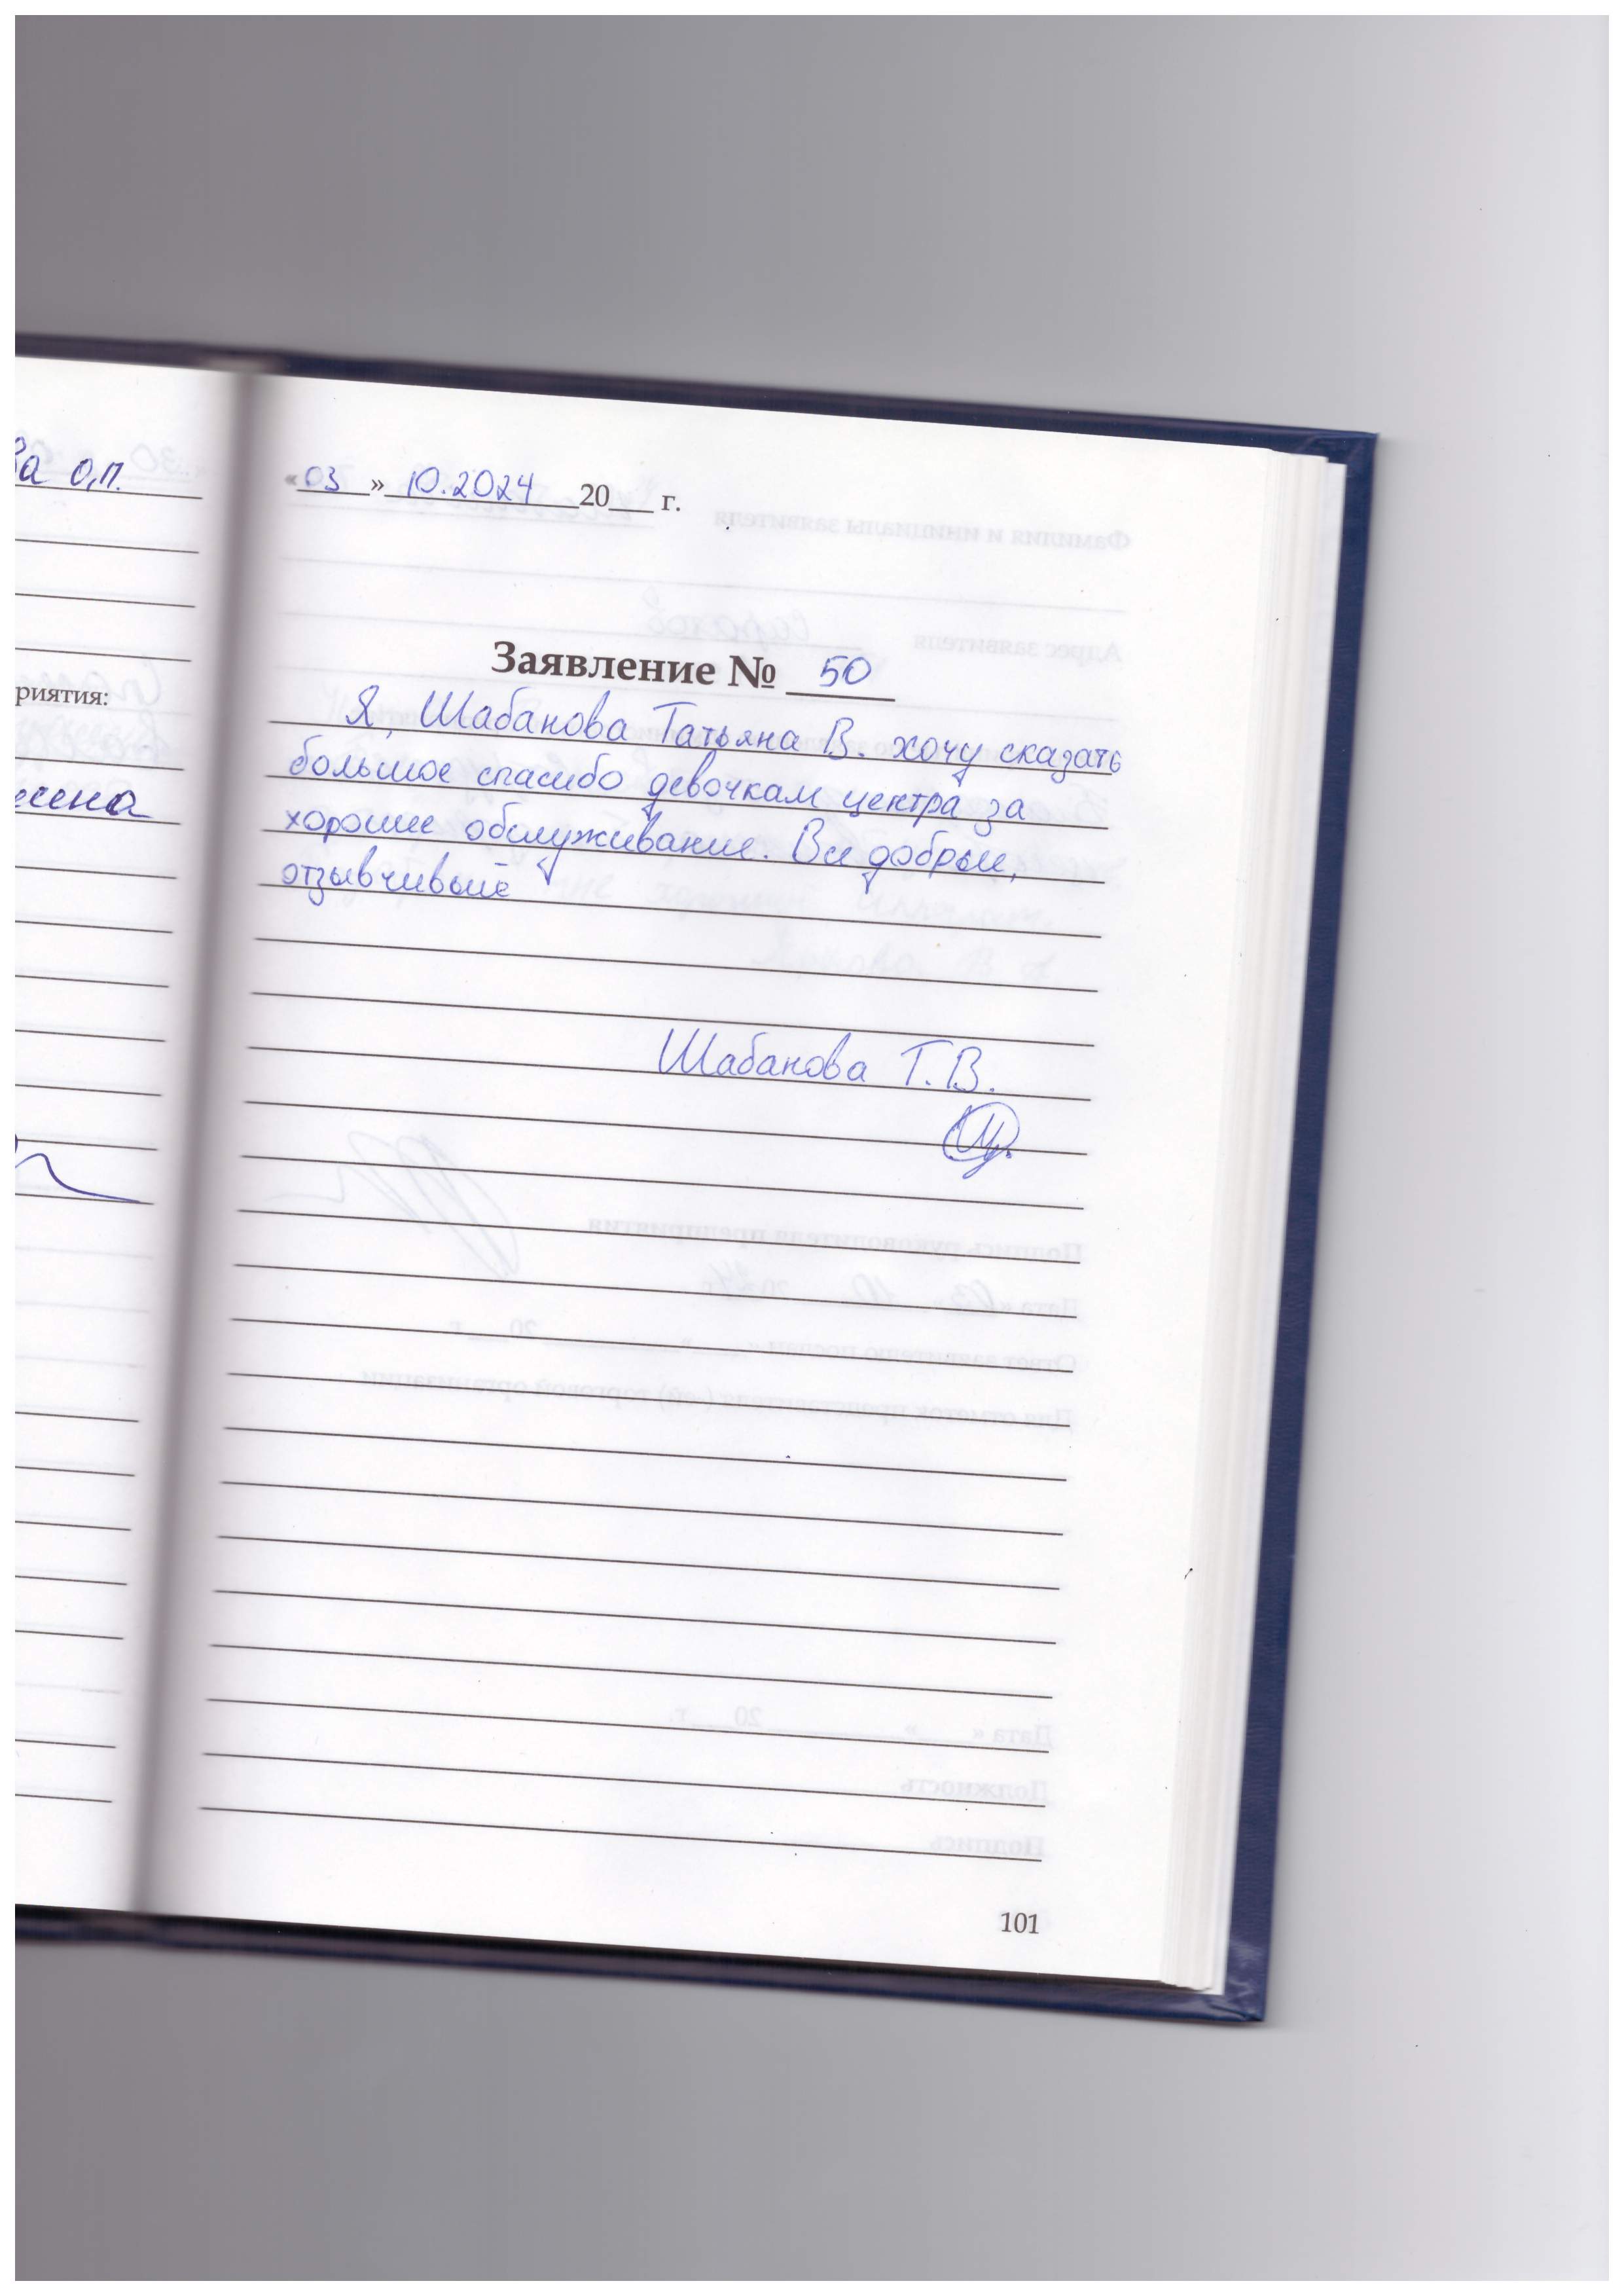 ва о,п.
риятия:
«03» 10.2024 20___ г.
Заявление № 50
Я, Шабанова Татьяна В. хочу сказать
большое спасибо девочкам центра за
хорошие обслуживание. Вы добрые,
отзывчивые
Шабанова Т.В.
101